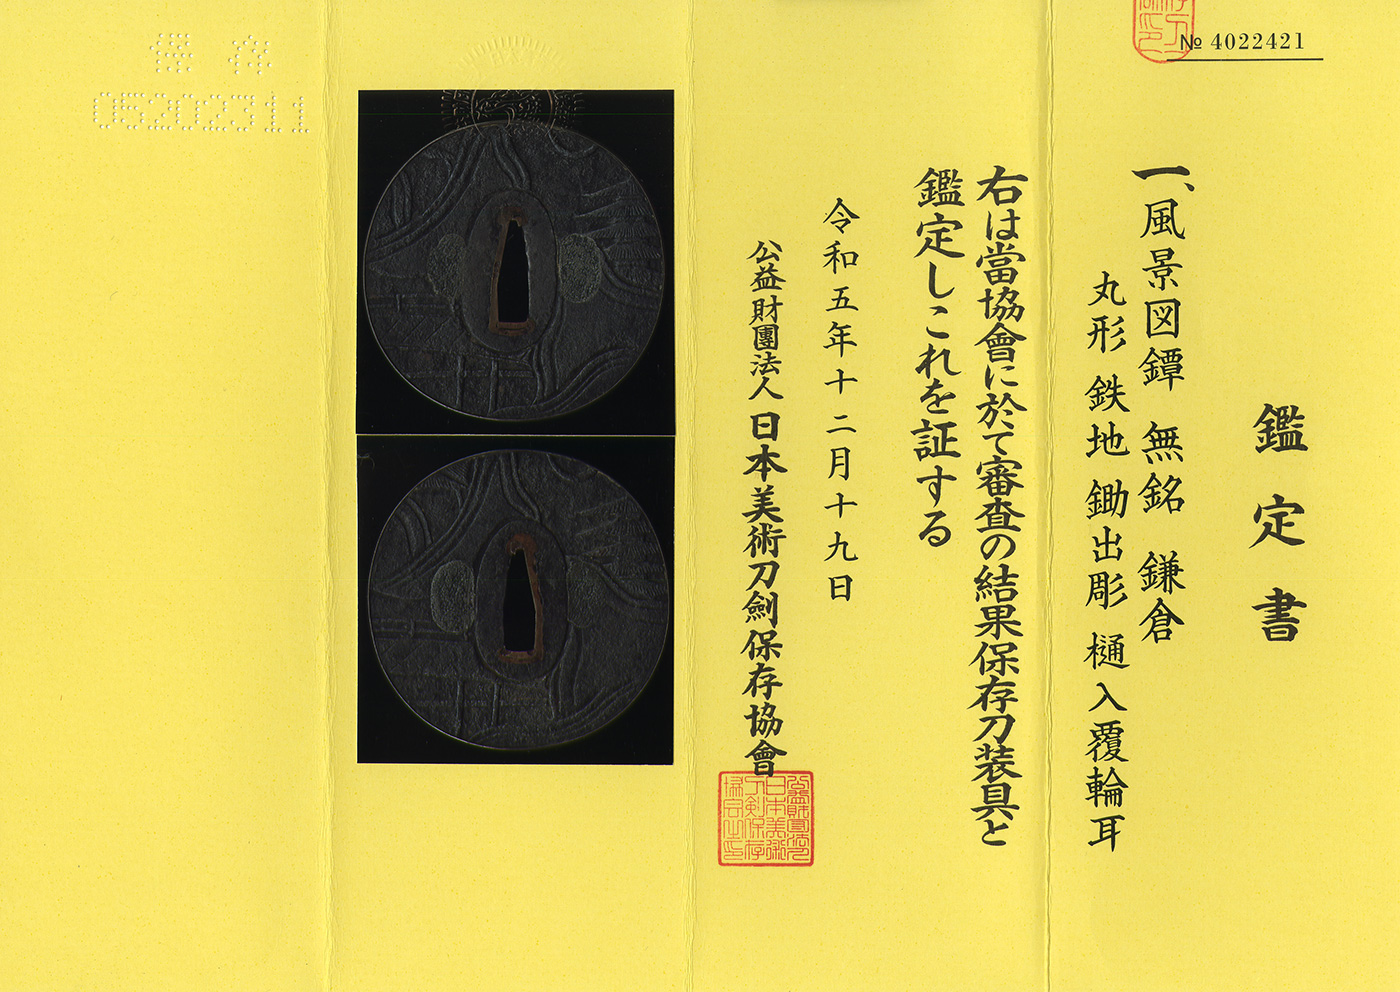 № 4022421
鑑定書
一、風景図鐔 無銘 鎌倉
丸形 鉄地 鋤出彫 樋入覆輪耳
右は當協會に於て審査の結果保存刀装具と
鑑定しこれを証する
令和五年十二月十九日
公益財團法人 日本美術刀劍保存協會
保存
05202311